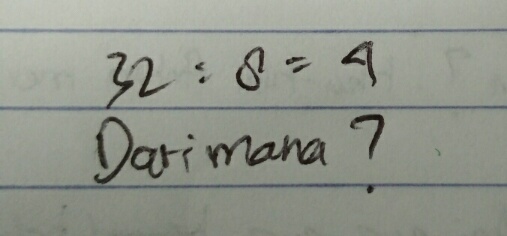 32 : 8 = 4
Darimana ?